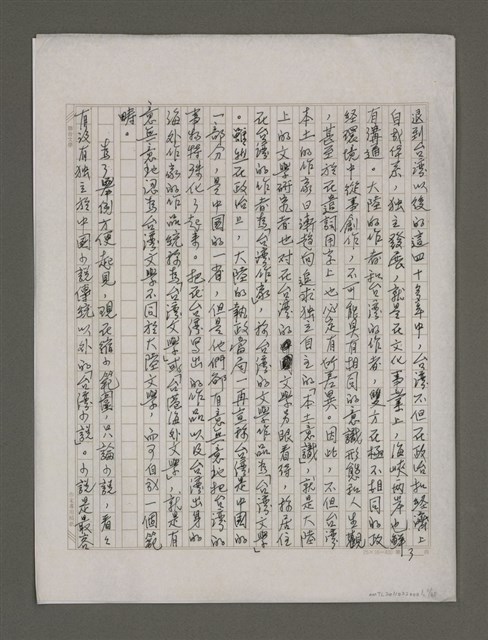 3
退到台灣以後的這四十多年中，台灣不但在政治和經濟上
自成体系，獨立發展，就是在文化事業上，海峽兩岸也鮮
有溝通。大陸的作者和台灣的作者，雙方在極不相同的政
經環境中從事創作，不可能具有相同的意識形態和人生觀
，甚至於在遣詞用字上也必定有所差異。因此，不但台灣
本土的作家日漸趨向追求獨立自主的「本土意識」，就是大陸
上的文學研究者也對在台灣的文學另眼看待，稱居住
在台灣的作者為「台灣作家」，稱台灣的文學作品為「台灣文學」
。雖然在政治上，大陸的執政當局一再宣稱台灣是中國的
一部分，是中國的一省，但是他們卻有意無意地把台灣的
事物特殊化了起來。把在台灣寫出的作品以及台灣出身的
海外作家的作品統稱為「台灣文學」或「台港海外文學」，就是有
意無意地認為「台灣文學」不同於大陸文學，而可自成一個範
疇。
為了舉例方便起見，現在縮小範圍，只論小說，看看
有沒有獨立於中國小說傳統以外的「台灣小說」。小說是最容